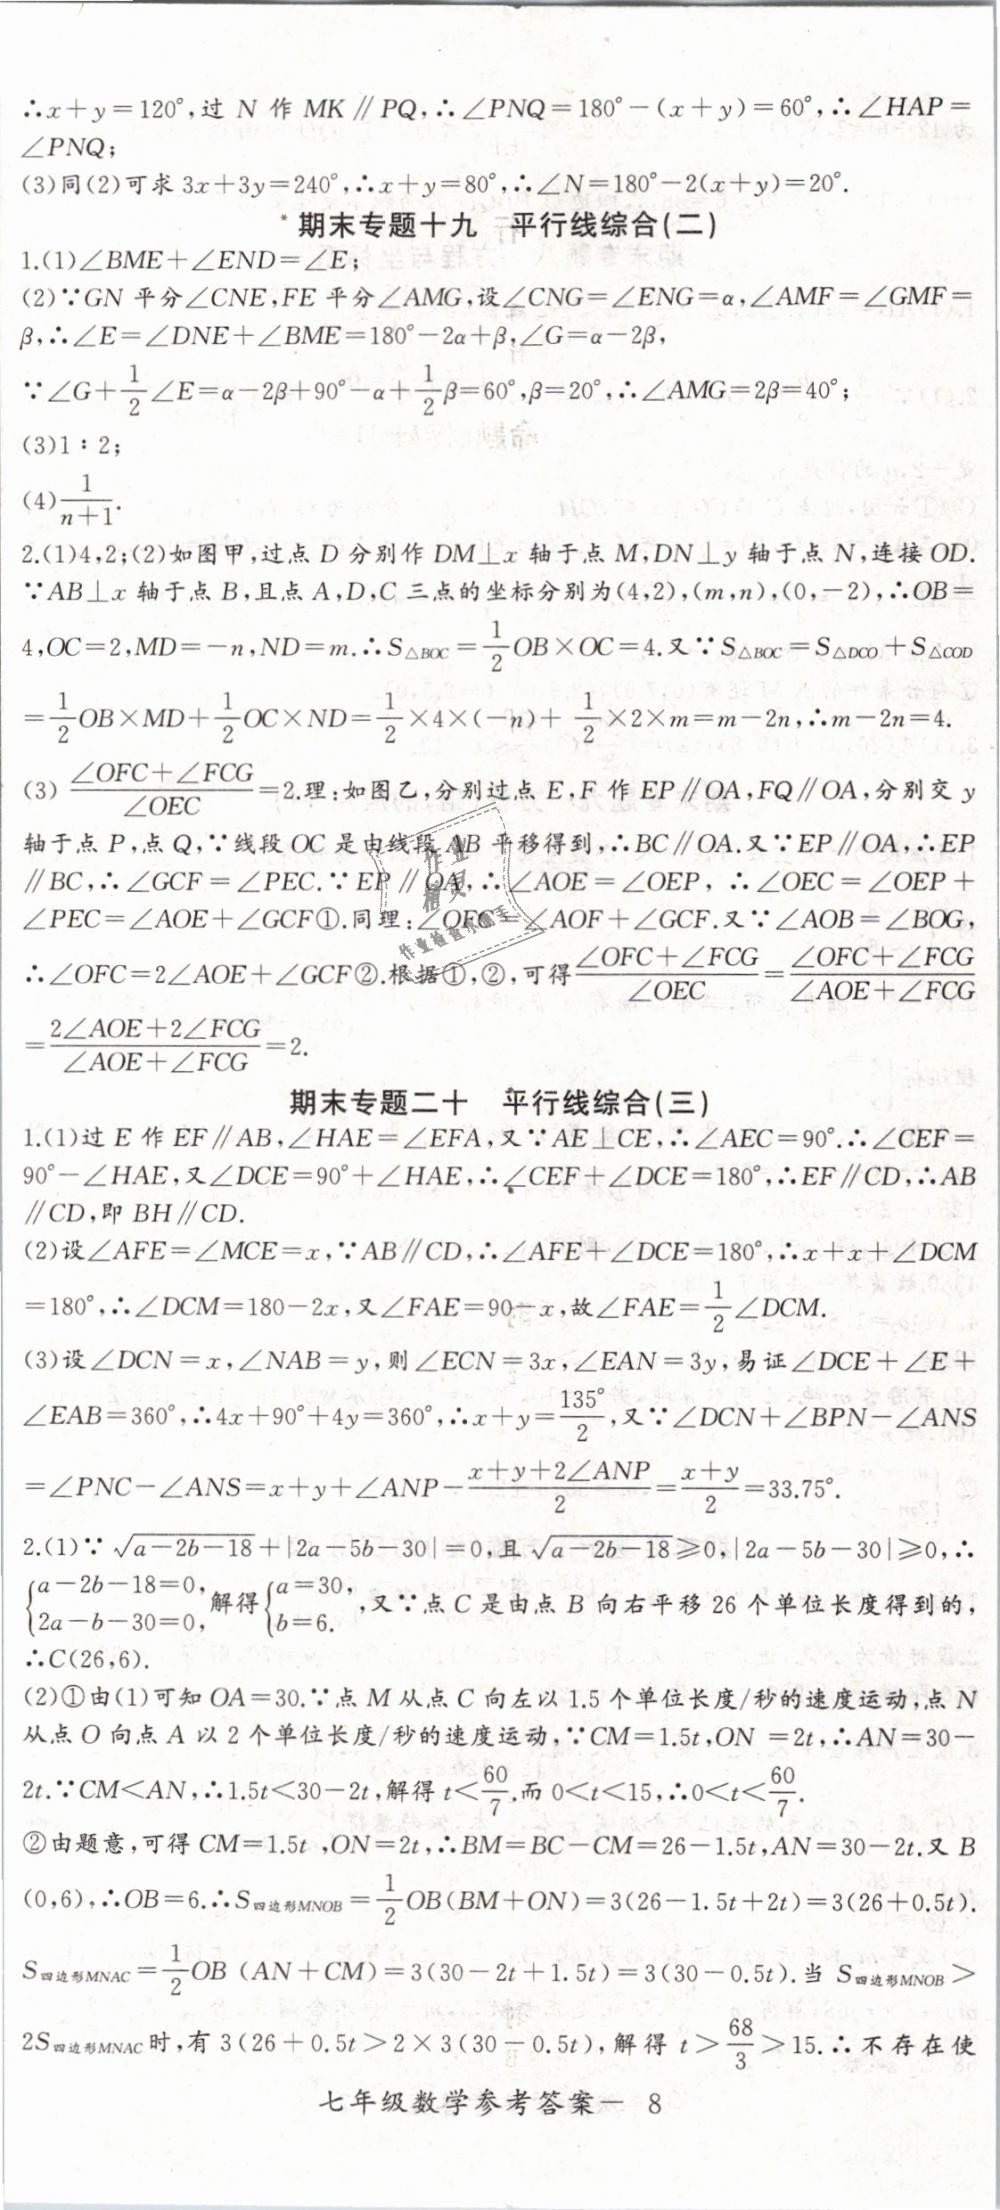 ∴x+y=120°,过 N 作 MK∥PQ,∴∠PNQ=180°-(x+y)=60°,∴∠HAP=
∠PNQ;
(3)同(2)可求 3x+3y=240°,∴x+y=80°,∴∠N=180°-2(x+y)=20°.
*期末专题十九 平行线综合(二)
1.(1)∠BME+∠END=∠E;
(2)∵GN 平分∠CNE,FE 平分∠AMG,设∠CNG=∠ENG=α,∠AMF=∠GMF=
β,∴∠E=∠DNE+∠BME=180°-2α+β,∠G=α-2β,
∵∠G+1/2∠E=α-2β+90°-α+1/2β=60°,β=20°,∴∠AMG=2β=40°;
(3)1:2;
(4)1/(n+1).
2.(1)4,2;(2)如图甲,过点 D 分别作 DM⊥x 轴于点 M,DN⊥y 轴于点 N,连接 OD.
∵AB⊥x 轴于点 B,且点 A,D,C 三点的坐标分别为(4,2),(m,n),(0,-2),∴OB=
4,OC=2,MD=-n,ND=m.∴S△BOC=1/2OB×OC=4.又∵S△BOC=S△DCO+S△COD
=1/2OB×MD+1/2OC×ND=1/2×4×(-n)+1/2×2×m=m-2n,∴m-2n=4.
(3)(∠OFC+∠FCG)/∠OEC=2.理:如图乙,分别过点 E,F 作 EP∥OA,FQ∥OA,分别交 y
轴于点 P,点 Q,∵线段 OC 是由线段 AB 平移得到,∴BC∥OA.又∵EP∥OA,∴EP
∥BC,∴∠GCF=∠PEC.∵EP∥OA,∴∠AOE=∠OEP,∴∠OEC=∠OEP+
∠PEC=∠AOE+∠GCF①.同理:∠OFC=∠AOF+∠GCF.又∵∠AOB=∠BOG,
∴∠OFC=2∠AOE+∠GCF②.根据①,②,可得(∠OFC+∠FCG)/∠OEC=(∠OFC+∠FCG)/(∠AOE+∠FCG)
=(2∠AOE+2∠FCG)/(∠AOE+∠FCG)=2.
期末专题二十 平行线综合(三)
1.(1)过 E 作 EF∥AB,∠HAE=∠EFA,又∵AE⊥CE,∴∠AEC=90°.∴∠CEF=
90°-∠HAE,又∠DCE=90°+∠HAE,∴∠CEF+∠DCE=180°,∴EF∥CD,∴AB
∥CD,即 BH∥CD.
(2)设∠AFE=∠MCE=x,∵AB∥CD,∴∠AFE+∠DCE=180°,∴x+x+∠DCM
=180°,∴∠DCM=180-2x,又∠FAE=90-x,故∠FAE=1/2∠DCM.
(3)设∠DCN=x,∠NAB=y,则∠ECN=3x,∠EAN=3y,易证∠DCE+∠E+
∠EAB=360°,∴4x+90°+4y=360°,∴x+y=135°/2,又∵∠DCN+∠BPN-∠ANS
=∠PNC-∠ANS=x+y+∠ANP-(x+y+2∠ANP)/2=(x+y)/2=33.75°.
2.(1)∵√(a-2b-18)+|2a-5b-30|=0,且√(a-2b-18)≥0,|2a-5b-30|≥0,∴
{a-2b-18=0, 2a-b-30=0, 解得{a=30, b=6. ,又∵点 C 是由点 B 向右平移 26 个单位长度得到的,
∴C(26,6).
(2)①由(1)可知 OA=30.∵点 M 从点 C 向左以 1.5 个单位长度/秒的速度运动,点 N
从点 O 向点 A 以 2 个单位长度/秒的速度运动,∵CM=1.5t,ON =2t,∴AN=30-
2t.∵CM<AN,∴1.5t<30-2t,解得 t<60/7.而 0<t<15,∴0<t<60/7.
②由题意,可得 CM=1.5t ,ON=2t,∴BM=BC-CM=26-1.5t,AN=30-2t.又 B
(0,6),∴OB=6.∴S四边形MNOB=1/2OB(BM+ON)=3(26-1.5t+2t)=3(26+0.5t).
S四边形MNAC=1/2OB (AN+CM)=3(30-2t+1.5t)=3(30-0.5t).当 S四边形MNOB>
2S四边形MNAC时,有 3(26+0.5t>2×3(30-0.5t),解得 t>68/3>15.∴不存在使
七年级数学参考答案- 8
作业
精灵